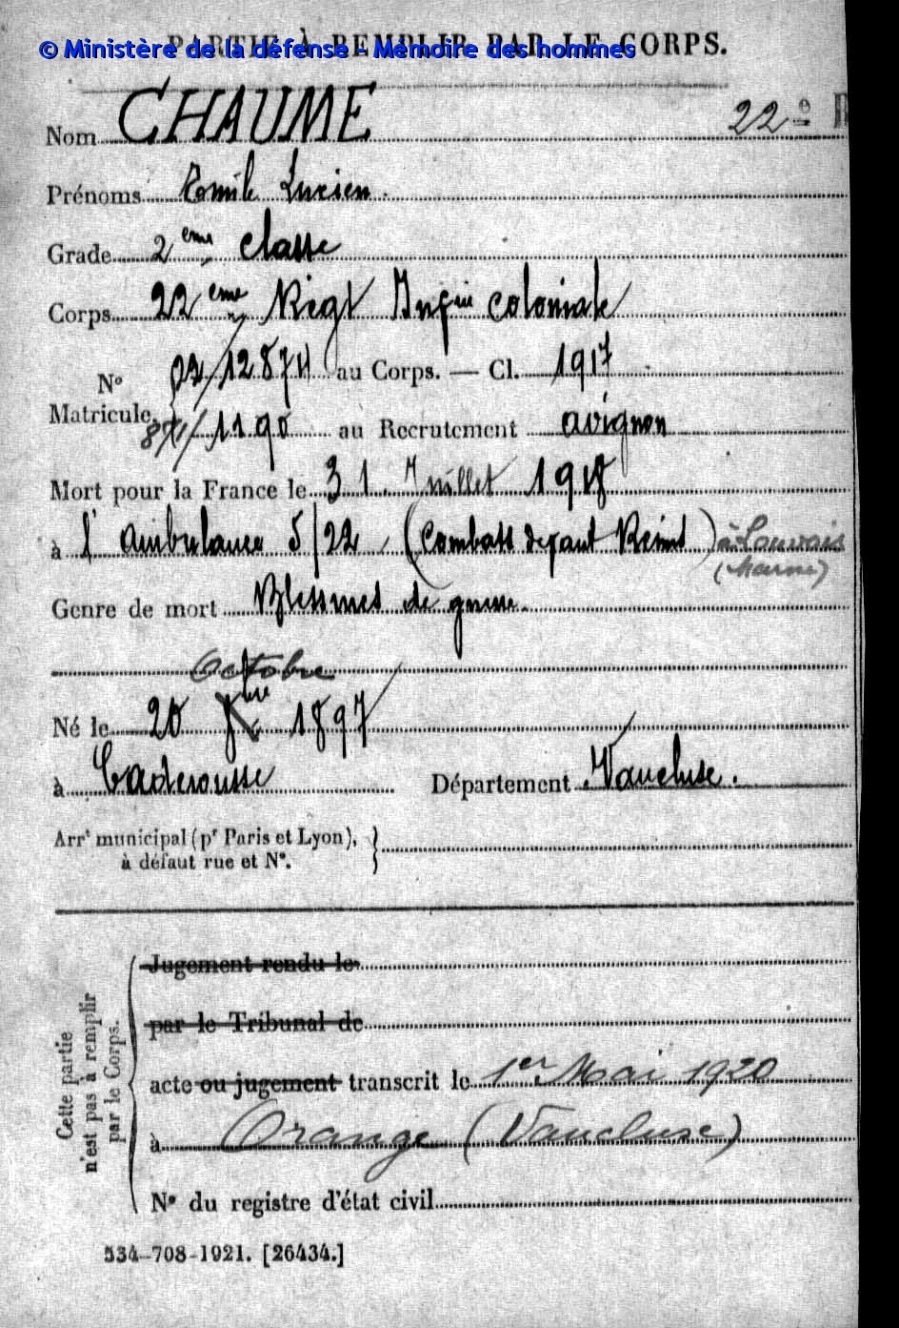 PARTIE À REMPLIR PAR LE CORPS.
© Ministère de la défense - Mémoire des hommes
Nom CHAUME 22e R
Prénoms Emile Lucien
Grade 2eme classe
Corps 22eme Régt Infie coloniale
No
Matricule.
02/12874 au Corps. — Cl. 1917
1190 au Recrutement avignon
Mort pour la France le 31 Juillet 1918
à l'ambulance 5/22, (Combats devant Reims) à Louvois
(Marne)
Genre de mort Blessures de guerre.
Octobre
Né le 20 1897
à Caderousse Département Vaucluse.
Arrt municipal (pr Paris et Lyon),
à défaut rue et No.
Cette partie
n'est pas à remplir
par le Corps.
Jugement rendu le
par le Tribunal de
acte ou jugement transcrit le 1er Mai 1920
à Orange (Vaucluse)
No du registre d'état civil
534-708-1921. [26434.]